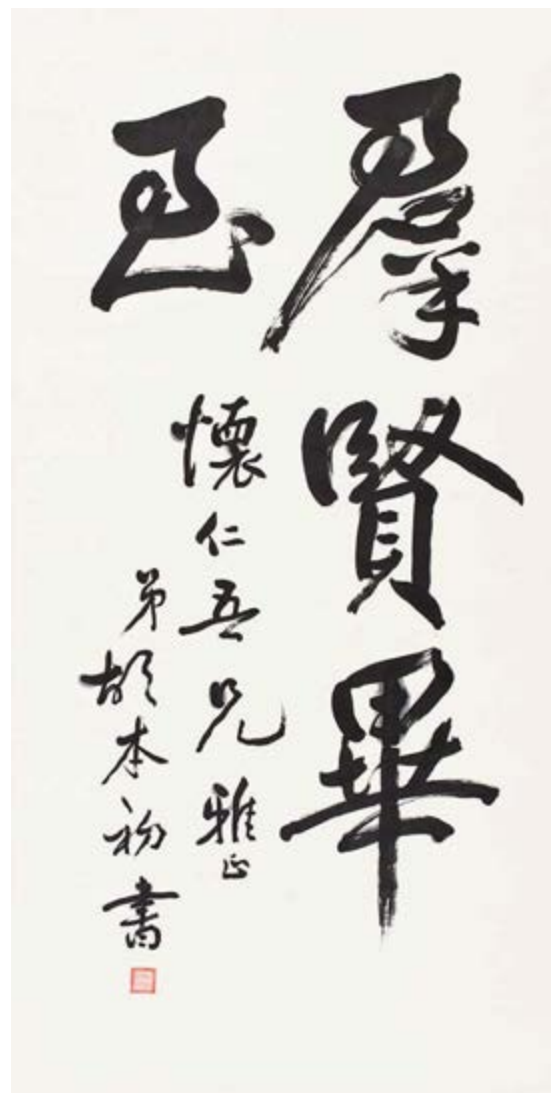 羣賢畢
至
懷仁吾兄雅正
弟胡本初書